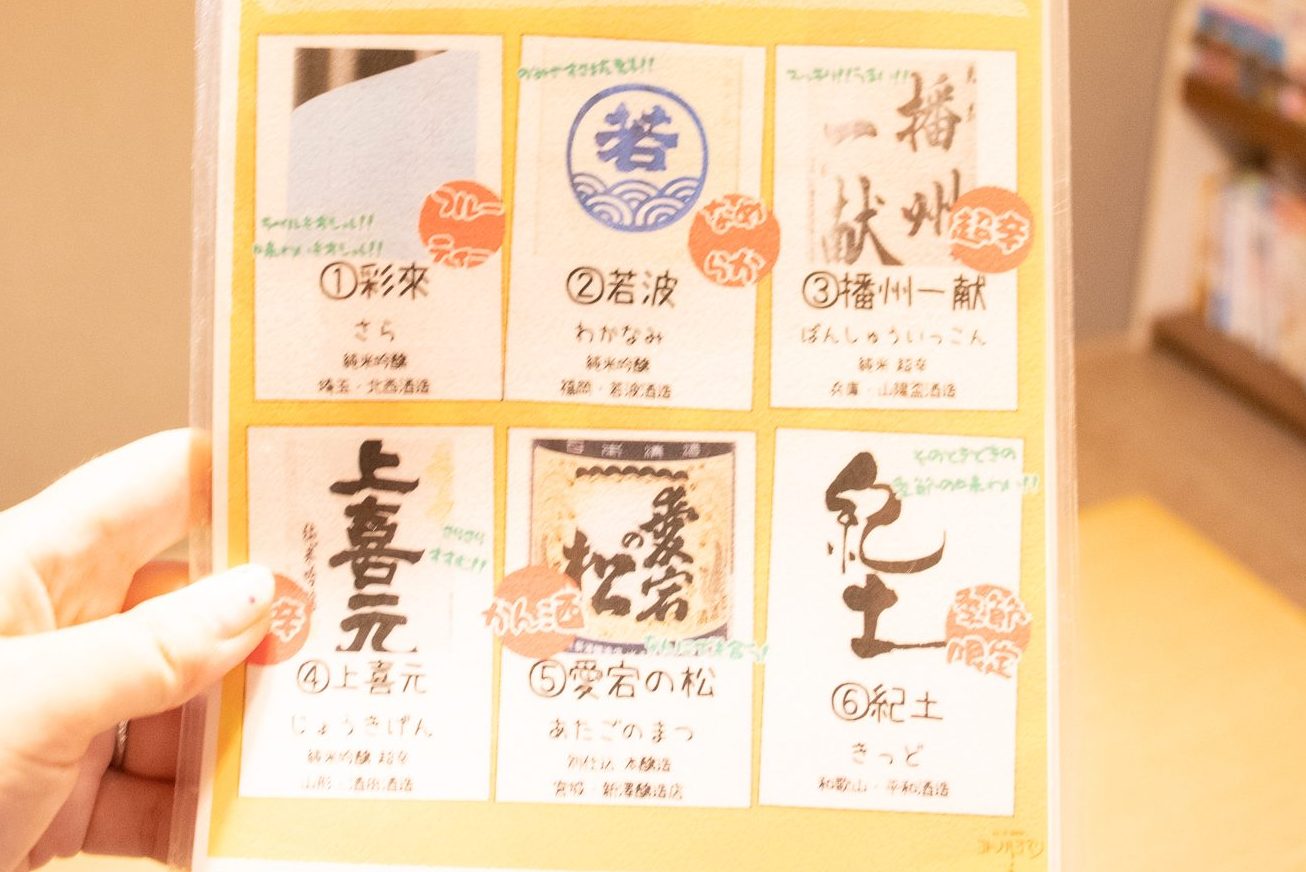 フルー
ティー
①彩來
さら
純米吟醸
埼玉・北西酒造
若
なめ
らか
②若波
わかなみ
純米吟醸
福岡・若波酒造
播州
一献
超辛
③播州一献
ばんしゅういっこん
純米 超辛
兵庫・山陽盃酒造
上喜元
さらさら
辛
④上喜元
じょうきげん
純米吟醸 超辛
山形・酒田酒造
日本清酒
愛宕
の
松
かん酒
⑤愛宕の松
あたごのまつ
別仕込 本醸造
宮城・新澤醸造店
紀土
そのときどきの
季節の味わい!!
季節
限定
⑥紀土
きっど
和歌山・平和酒造